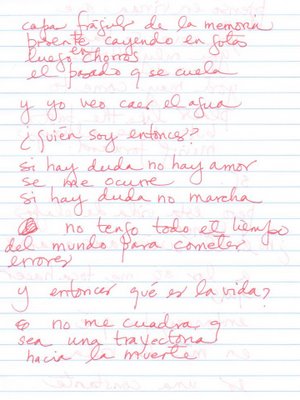 capa frágil de la memoria
presente cayendo en gotas
luego en chorros
el pasado q se cuela
y yo veo caer el agua
¿quién soy entonces?
si hay duda no hay amor
se me ocurre
si hay duda no marcha
no tengo todo el tiempo
del mundo para cometer
errores
y entonces qué es la vida?
no me cuadra q
sea una trayectoria
hacia la muerte